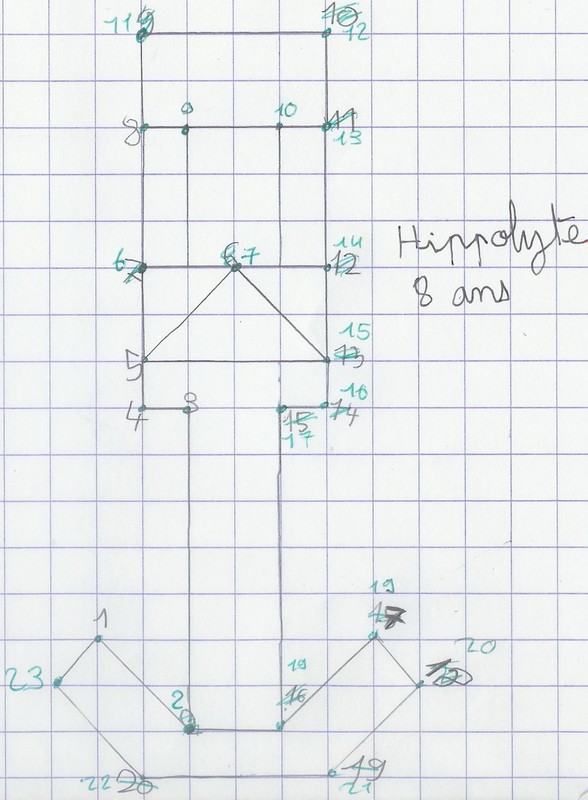 11 9 10 12
8 9 10 11 13
6 7 6 7 14 12
Hippolyte
8 ans
5 15 13
4 3 16 14
15
17
1 19 17
23 20
2 19 16
22 20 19 21